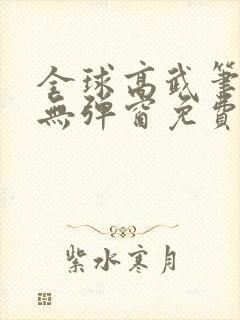 全球高武筆
無彈窗免費
紫水寒月